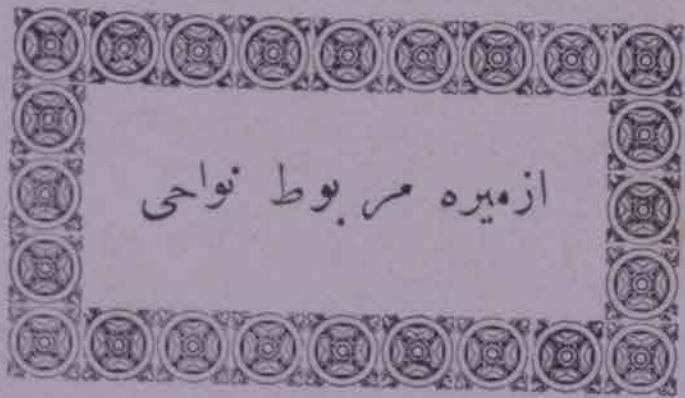 ازميره مربوط نواحى